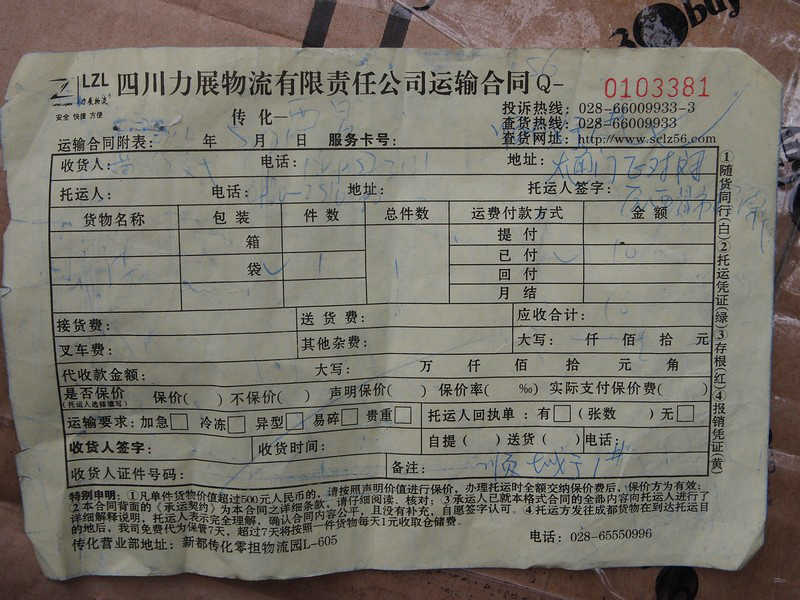 LZL 四川力展物流有限责任公司运输合同 Q- 0103381
力展物流
安全 快捷 方便
传化—西昌
投诉热线：028-66009933-3
查货热线：028-66009933
查货网址：http://www.sclz56.com
运输合同附表： 年 5月 日 服务卡号：
收货人： 电话： 地址：
托运人： 电话： 地址： 托运人签字：
货物名称 包装 件数 总件数 运费付款方式 金额
箱 提付
袋 1 1 已付 10
回付
月结
接货费： 送货费： 应收合计：10
叉车费： 其他杂费： 大写： 仟 佰 拾 元
代收款金额： 大写： 万 仟 佰 拾 元 角
是否保价 保价( ) 不保价( ) 声明保价( ) 保价率( ‰) 实际支付保价费( )
(托运人选择填写)
运输要求：加急□ 冷冻□ 异型□ 易碎□ 贵重□ 托运人回执单：有□ (张数 )无□
收货人签字： 收货时间： 自提( )送货( )电话：
收货人证件号码： 备注：
特别申明：①凡单件货物价值超过500元人民币的，请按照声明价值进行保价，办理托运时全额交纳保价费后，保价方为有效；
2本合同背面的《承运契约》为本合同之详细条款，请仔细阅读、核对；3承运人已就本格式合同的全部内容向托运人进行了
详细解释说明，托运人表示完全理解，确认合同内容公平，且没有补充，自愿签字认可。4托运方发往成都货物在到达托运目
的地后，我司免费代为保管7天，超过7天将按照一件货物每天1元收取仓储费。
传化营业部地址：新都传化零担物流园L-605 电话：028-65550996
①随货同行(白)②托运凭证(绿)③存根(红)④报销凭证(黄)
buy